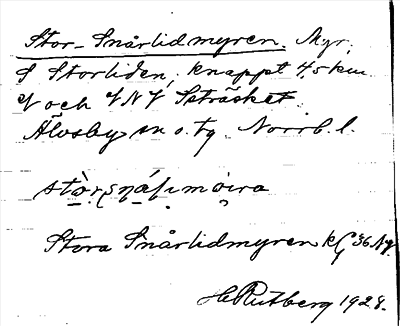 Stor-Snårlidmyren. Myr,
S Storliden, knappt 4,5 km
V och VNV Sstråsket.
Älvsby sn o. tg. Norrb. l.
Stora Snårlidmyren k G 36 Ny.
H Rutberg 1928.